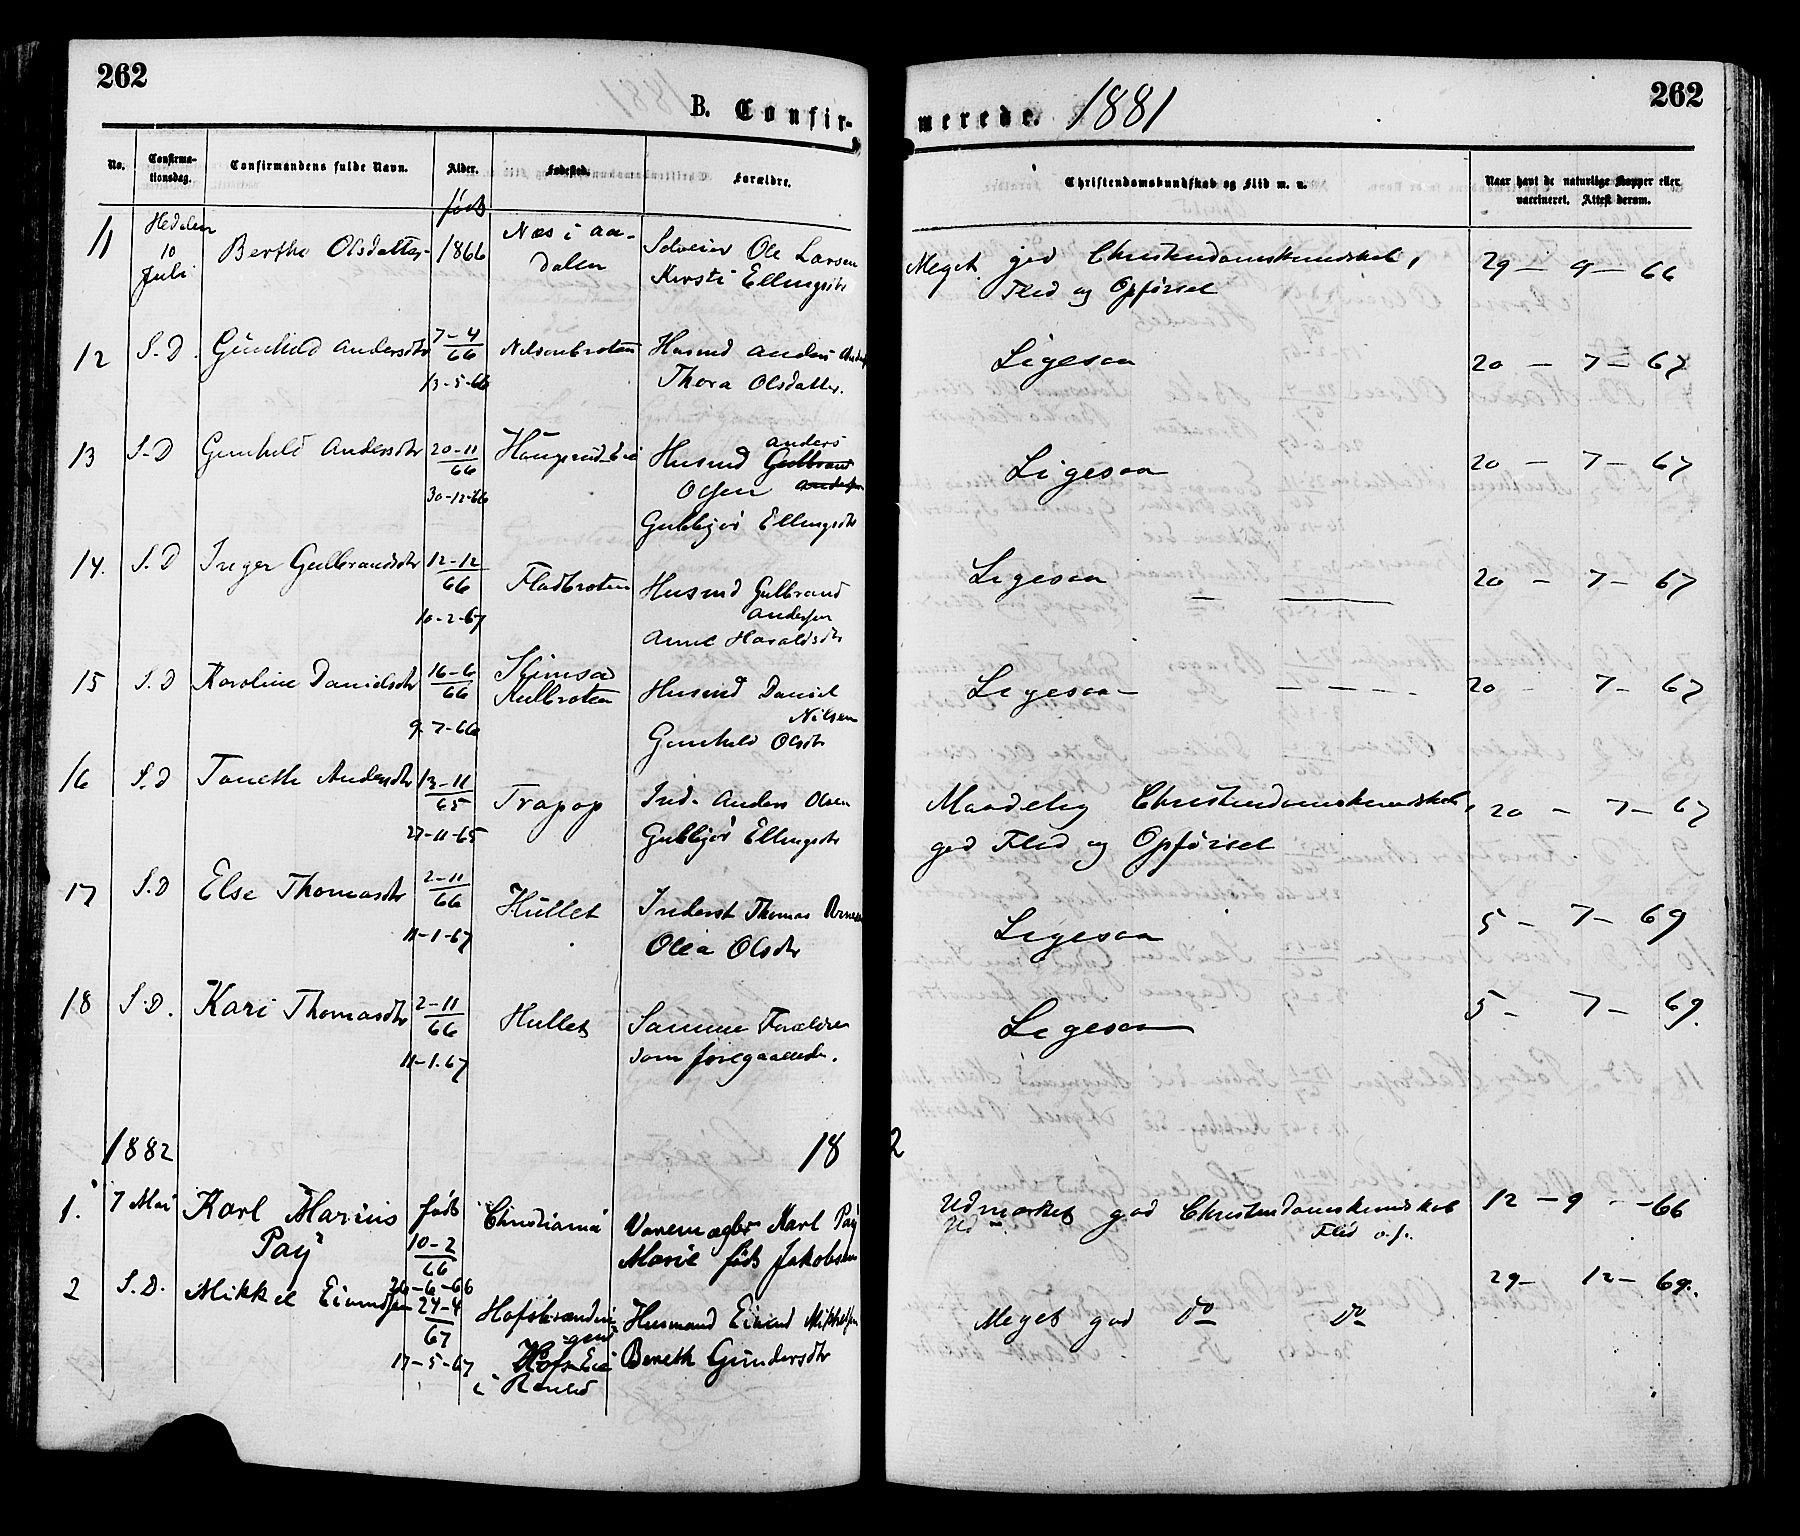 262
262
B. Confir-
merede. 1881
No.
Confirma-
tionsdag.
Confirmandens fulde Navn.
Alder.
Fødested.
Forældre.
Christendomskundskab og Flid m. v.
Naar havt de naturlige Kopper eller
vaccineret. Attest derom.
født
11 Hedalen 10 Juli Berthe Olsdatter 1866 Næs i Aa-
dalen
Selveier Ole Larsen
Kersti Ellingsdtr
Meget god Christendomskundskab,
Flid og Opførsel
29 - 9 - 66
12 S.D. Gunhild Andersdtr 7-4
66
13-5-66
Nilsenbroten Husmd Anders
Thora Olsdatter.
Ligesaa 20 - 7 - 67
13 S.D Gunhild Andersdtr 20-11
66
30-12-66
Haugerud Eie Husmd Anders Gulbrand
Olsen Andersen
Gulbjør Ellingsdtr
Ligesaa 20 - 7 - 67
14. S.D Inger Gulbrandsdtr 12-12
66
10-2-67
Fladbroten Husmd Gulbrand
Andersen
Anne Haraldsdtr
Ligesaa 20 - 7 - 67
15 S.D Karoline Danielsdtr 16-6
66
9-7-66
Husmd Daniel
Nilsen
Gunhild Olsdtr
Ligesaa 20 - 7 - 67
16 S.D Toneth Andersdtr 13-11
65
27-11-65
Trapop Ind. Anders Olsen
Gulbjør Ellingsdtr
Maadelig Christendomskundskab,
god Flid og Opførsel
20 - 7 - 67
17 S.D Else Thomasdtr 2-11
66
11-1-67
Hullet Inderst Thomas Arnesen
Olea Olsdtr
Ligesaa 5 - 7 - 69
18 S.D. Kari Thomasdtr 2-11
66
11-1-67
Hullet Samme Forældre
som foregaaende.
Ligesaa 5 - 7 - 69.
1882
18 2
1. 7 Mai Karl Marius
Pay
født
10-2
66
26-6-66
Christiania Karl Pay
Marie født Jakobsen
Udmærket god Christendomskundskab
Flid o.s.
12 - 9 - 66
2 S.D. Mikkel Eivindsen 24-4
67
17-5-67
Hofsbrændin-
gen
Hofs Eie
i
Husmand Eivind Mikkelsen
Bereth Gundersdtr
Meget god do do
29 - 12 - 69.